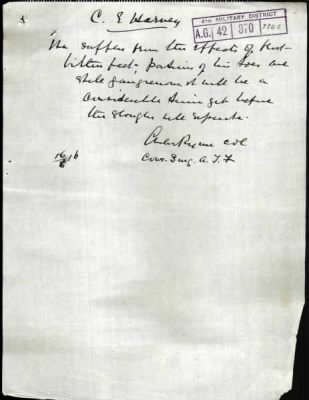 C. E Harvey
4TH MILITARY DISTRICT
A.G. 42 370
He suffers from the effects of frost
bitten feet. Portions of his toes are
still gangrenous & it will be a
considerable time yet before
the sloughs will separate.
col
A.I.F